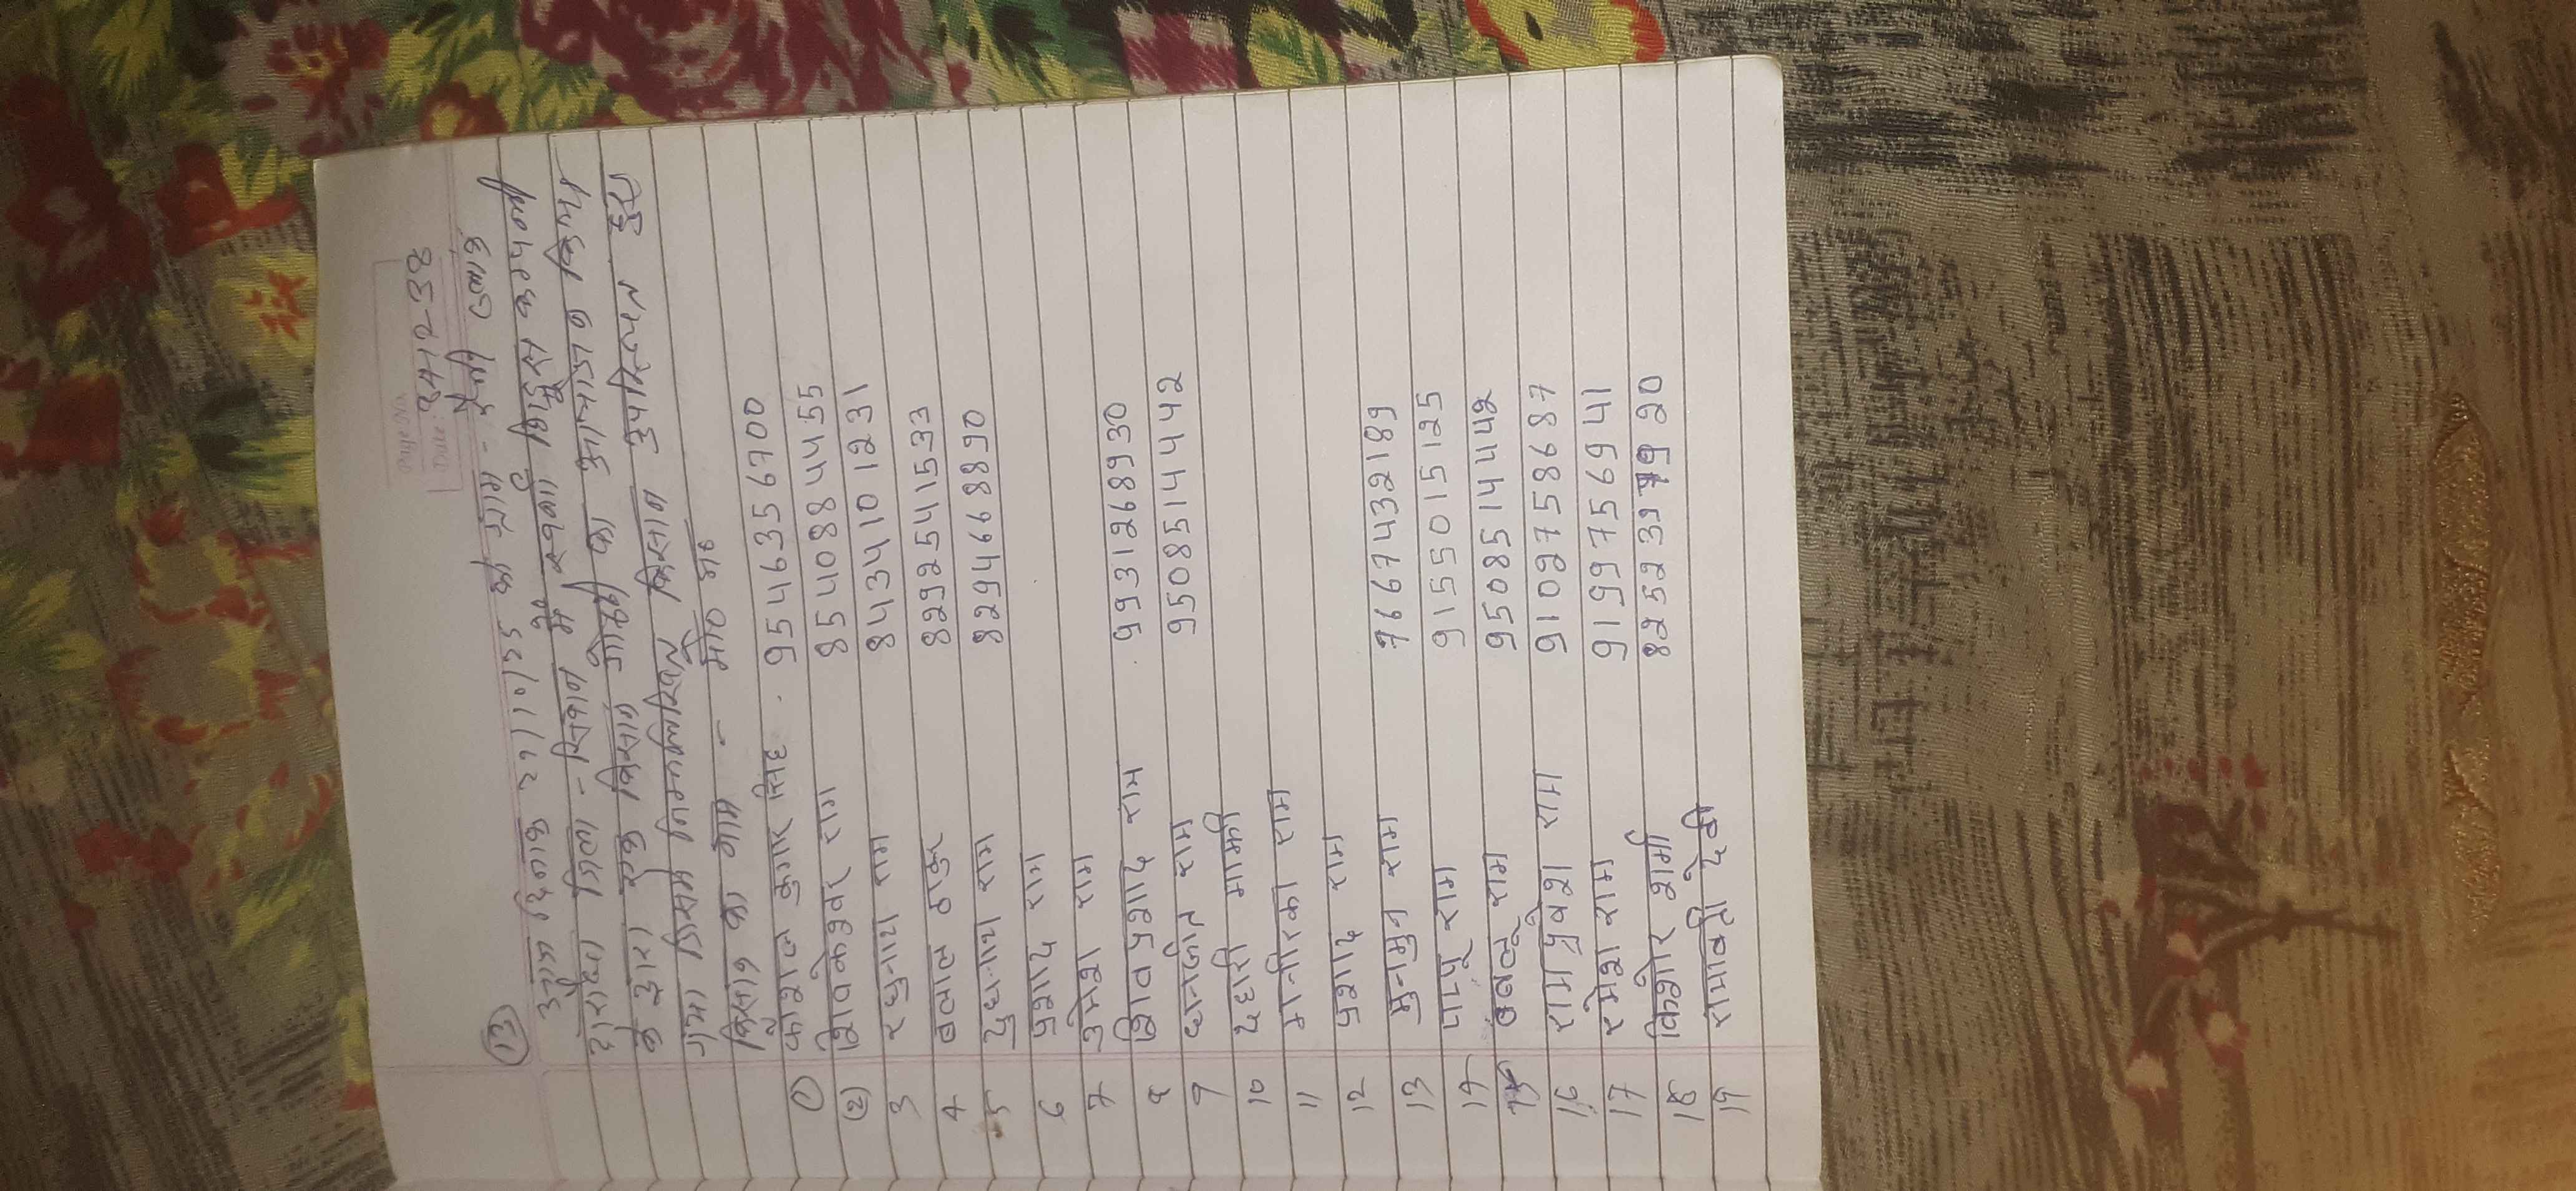 Page No.
Date: 8412-38
(13)
आज दिनांक 27/10/25 को ग्राम - ब्लाक
जिला - सिवान में स्वर्णा बिड्स कम्पनी
के द्वारा एक किसान गोष्ठी का आयोजन किया
गया जिसमें निम्नलिखित किसान उपस्थित हुए
किसान का नाम - मो० न०
(1) कौशल कुमार सिंह . 9546356700
(2) शिवकेश्वर राम 8540884455
3 रघुनाथ राम 8434101231
4 बलाल ठाकुर 8292541533
5 दुधनाथ राम 8294668890
6 प्रशाद राम
7 उमेश राम
8 शिव प्रशाद राम . 9931268930
9 धनजीत राम 9508514442
10 दहारी माझी
11 मनीरका राम
12 प्रशाद राम
13 मुनमुन राम 7667432189
14 पप्पू राम 9155015125
15 बबलू राम 9508514442
16 राम प्रवेश राम 9102758687
17 रमेश राम 9199756941
18 किशोर शर्मा
19 रामावती देवी